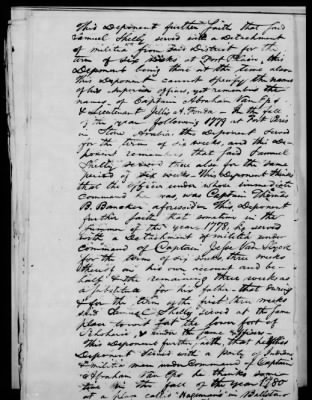 This Deponent further saith that said
Samuel Shelly served with a Detachment
of militia from said District for the
term of six weeks at Fort Plain, this
Deponent being there at the time also
this Deponent cannot specify the names
of his superior officers, yet remembers the
names of Captain Abraham Van Eps
& Lieutenant Jellis A. Fonda - In the fall
of the year following 1779 at Fort Paris
in Stone Arabia, the Deponent served
for the term of six weeks, and this De-
ponent remembers that said Samuel
Shelly served there also for the same
period of six weeks. This Deponent thinks
that the officer under whose immediate
command he was, was Captain
B. Bancker aforesaid This Deponent
further saith that sometime in the
Summer of the year 1778, he served
with a Detachment of militia under
command of Captain Jesse Van Slyck
for the term of six weeks three weeks
thereof on his own account and be-
half & the remaining three weeks as
a substitute for his father - that during
& for the term of the first three weeks
said Samuel Shelly served at the same
place to wit at the lower fort of
Schoharie, & under the same officers -
This Deponent further saith, that he this
Deponent served with a party of Indians
& militia men under Command of Captain
Abraham Van Eps he thinks some
time in the fall of the year 1780
at a place called in Ballston